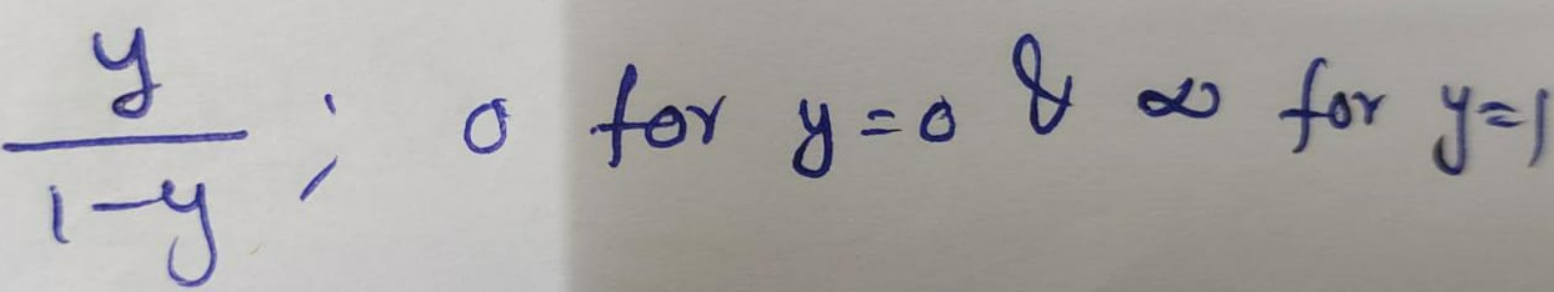 y/(1-y) ; 0 for y=0 & ∞ for y=1